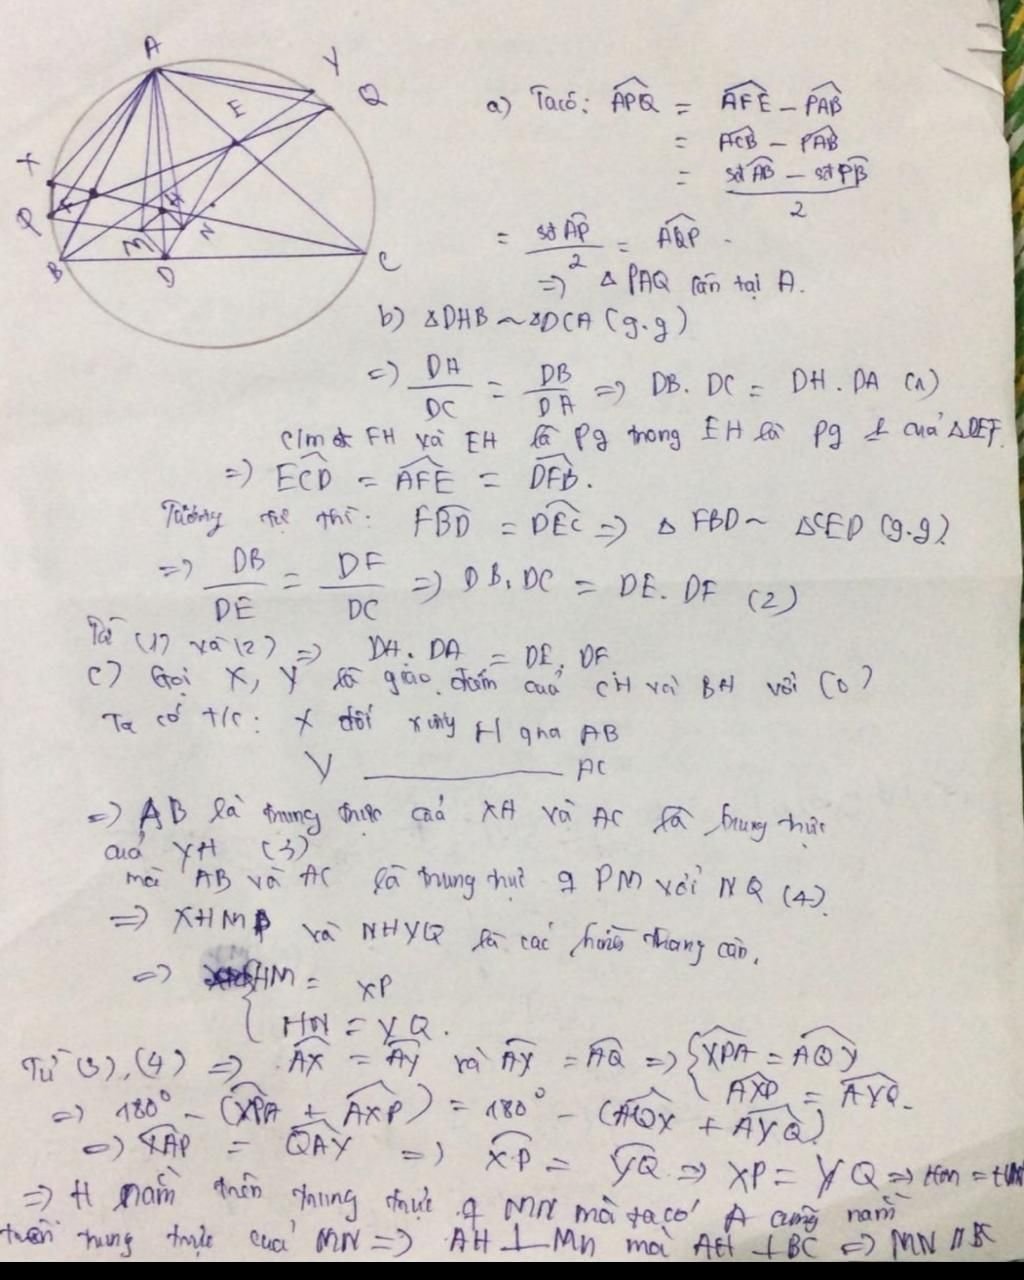 A
Y
Q
E
X
P
H
M
N
B
D
C
a) Ta có: APQ = AFE - PAB
= ACB - PAB
= sđ AB - sđ PB / 2
= sđ AP / 2 = AQP
=> Δ PAQ cân tại A.
b) ΔDHB ~ ΔDCA (g.g)
=> DH/DC = DB/DA => DB. DC = DH. DA (1)
c/m đc FH và EH là pg trong EH là pg ⊥ của ΔDEF.
=> ECD = AFE = DFB.
Tương tự thì: FBD = DEC => Δ FBD ~ ΔCED (g.g)
=> DB/DE = DF/DC => DB. DC = DE. DF (2)
Từ (1) và (2) => DH. DA = DE. DF
c) Gọi X, Y là giao điểm của CH và BH với (O)
Ta có t/c: X đối xứng H qua AB
Y ——— AC
=> AB là trung trực của XH và AC là trung trực
của YH (3)
mà AB và AC là trung trực q PM với NQ (4).
=> XHMP và NHYQ là các hình thang cân.
=> { HM = XP
HN = YQ.
Từ (3), (4) => AX = AY và AY = AQ => { XPA = AQY
AXP = AYQ.
=> 180° - (XPA + AXP) = 180° - (AQY + AYQ)
=> XAP = QAY => XP = YQ => XP = YQ => HM = HN
=> H nằm trên trung trực q MN mà ta có A cũng nằm
trên trung trực của MN => AH ⊥ MN mà AH ⊥ BC => MN // BC